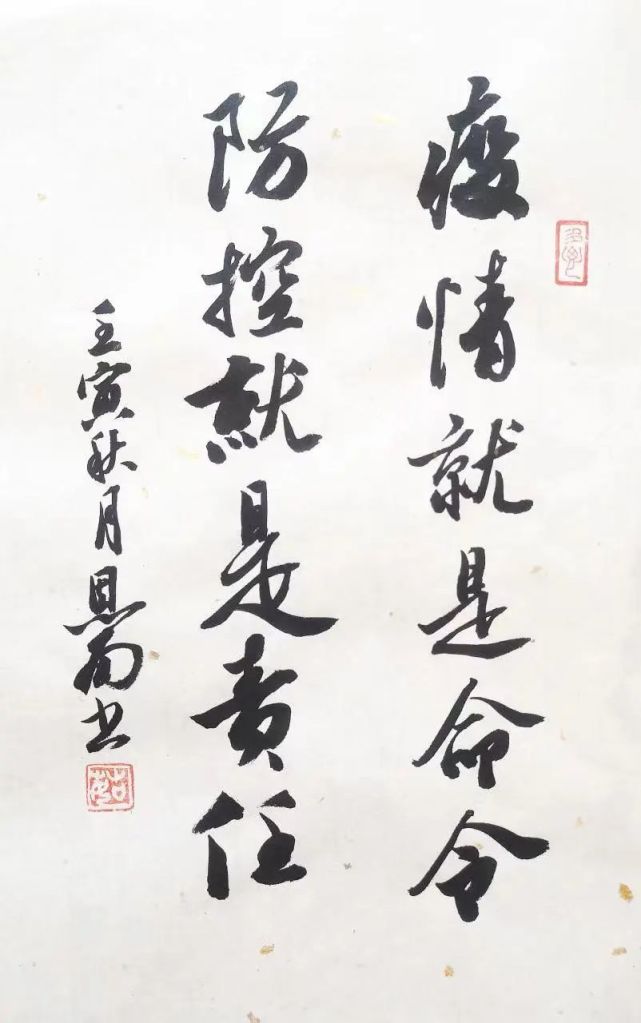 疫情就是命令
防控就是责任
壬寅秋月恩而书